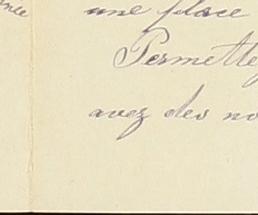 une place
Permettez
avez des no